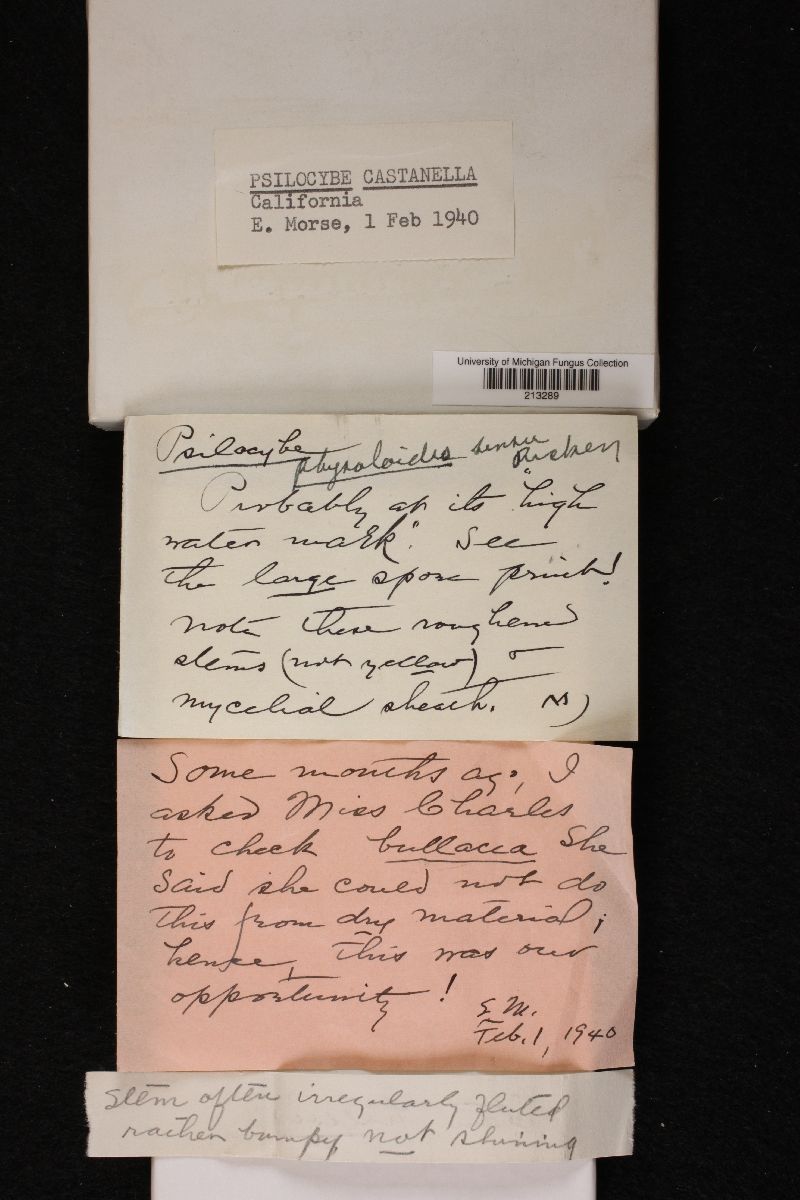 PSILOCYBE CASTANELLA
California
E. Morse, 1 Feb 1940
University of Michigan Fungus Collection
213289
Psilocybe physaloides sensu Ricken
Probably at its "high
water mark". See
the large spore print!
Note these roughened
stems (not yellow) &
mycelial sheath.
Some months ago, I
asked Miss Charles
to check bullacea She
said she could not do
this from dry material;
hence, this was our
opportunity!
E. M.
Feb. 1, 1940
stem often irregularly fluted
rather bumpy not shining